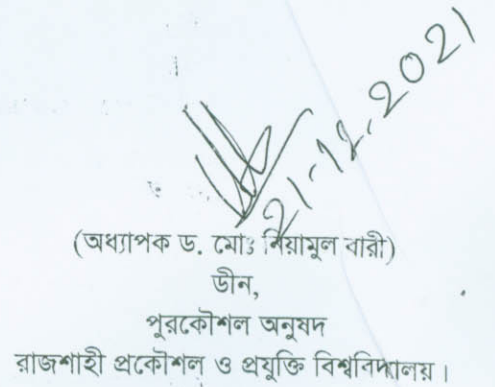 21-12-2021
(অধ্যাপক ড. মোঃ নিয়ামুল বারী)
ডীন,
পুরকৌশল অনুষদ
রাজশাহী প্রকৌশল ও প্রযুক্তি বিশ্ববিদ্যালয়।